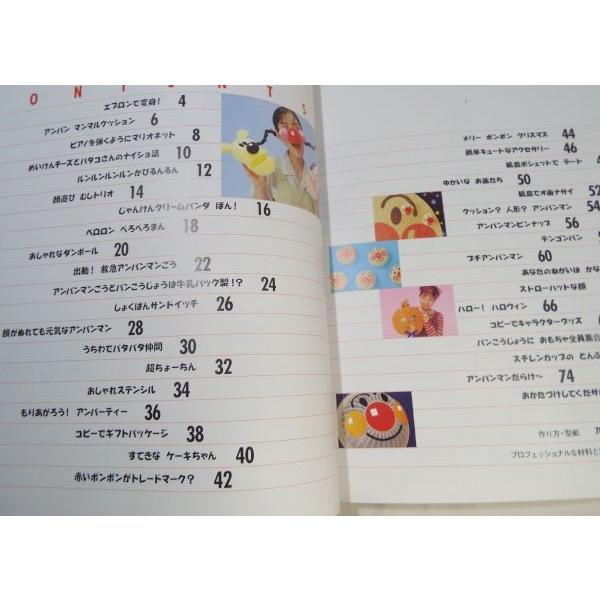 ONTENTS
エプロンで変身! 4
アンパン マンマルクッション 6
ピアノを弾くようにマリオネット 8
めいけんチーズとバタコさんのナイショ話 10
ルンルンルンルンかびるんるん 12
顔遊び むしトリオ 14
じゃんけんクリームパンダ ぽん! 16
ペロロン べろべろまん 18
おしゃれなダンボール 20
出動! 救急アンパンマンごう 22
アンパンマンごうとパンこうじょうは牛乳パック製!? 24
しょくぱんサンドイッチ 26
顔がぬれても元気なアンパンマン 28
うちわでパタパタ仲間 30
超ちょーちん 32
おしゃれステンシル 34
もりあがろう! アンパーティー 36
コピーでギフトパッケージ 38
すてきな ケーキちゃん 40
赤いポンポンがトレードマーク? 42
メリー ポンポン クリスマス 44
簡単キュートなアクセサリー 46
紙皿ポシェットで デート
ゆかいな お面たち 50
紙皿でオ面ナサイ
クッション? 人形? アンパンマン 54
アンパンマンピンナップ 56
テンゴンパン
プチアンパンマン 60
あなたのねがいは かな
ストローハットな顔
ハロー! ハロウィン 66
コピーでキャラクターグッズ
パンこうじょうに おもちゃ全員集合
スチレンカップの どんぶ
アンパンマンだらけ〜 74
おかたづけしてくだサ
作り方・型紙
プロフェッショナルな材料と